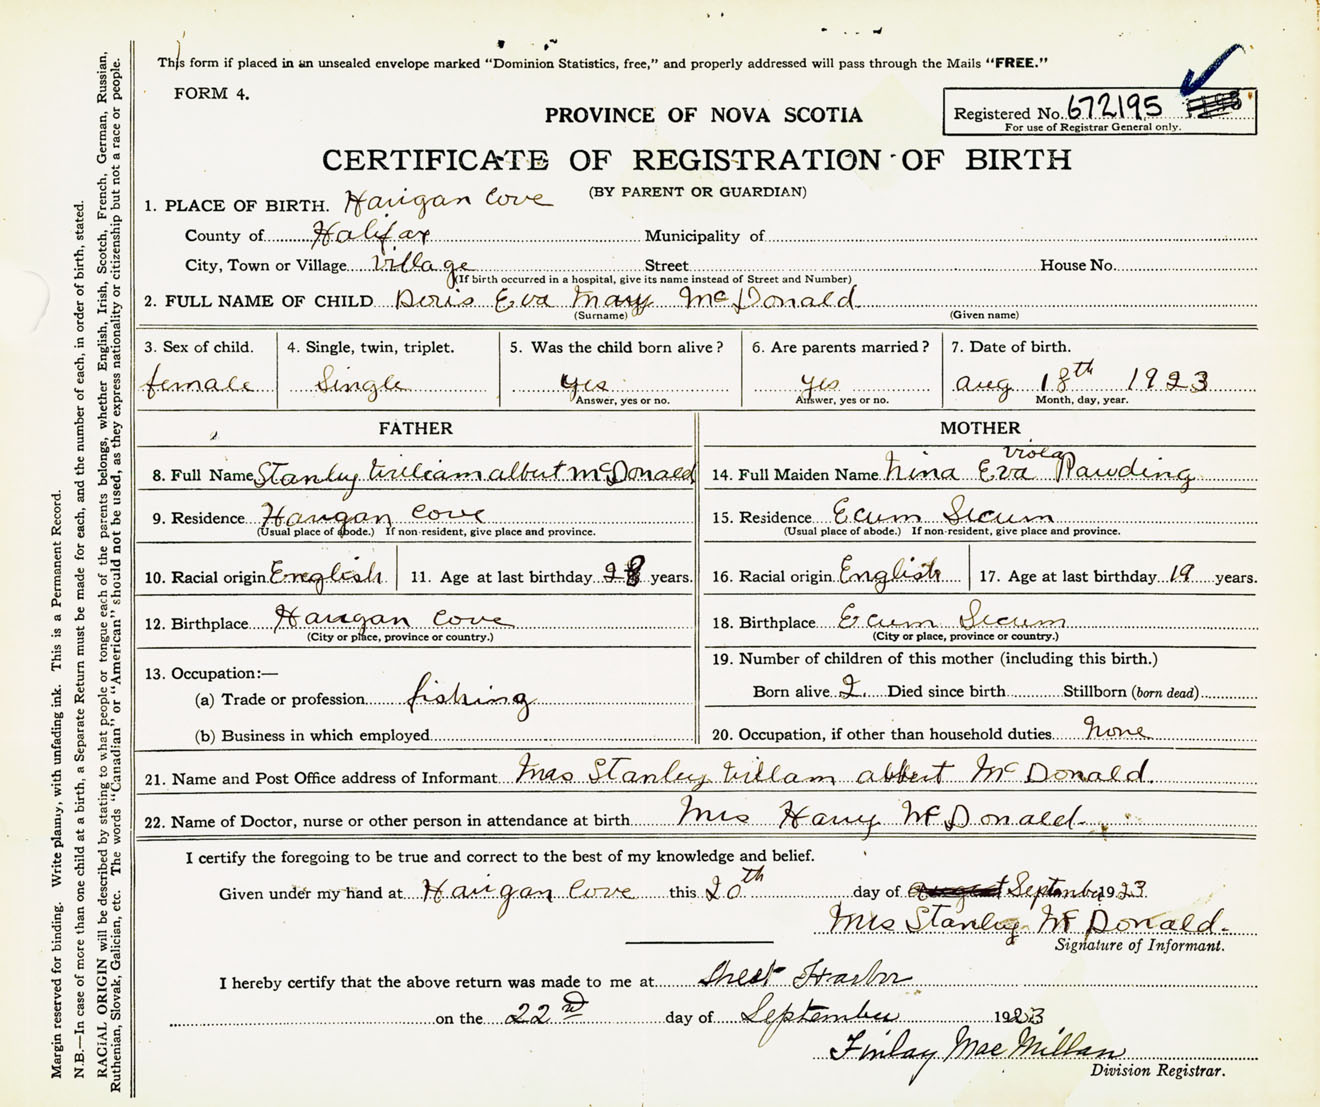 This form if placed in an unsealed envelope marked "Dominion Statistics, free," and properly addressed will pass through the Mails "FREE."
FORM 4.
PROVINCE OF NOVA SCOTIA
Registered No. 672195
For use of Registrar General only.
CERTIFICATE OF REGISTRATION OF BIRTH
(BY PARENT OR GUARDIAN)
1. PLACE OF BIRTH. Harigan Cove
County of Halifax Municipality of
City, Town or Village Village Street House No.
(If birth occurred in a hospital, give its name instead of Street and Number)
2. FULL NAME OF CHILD Doris Eva Mary McDonald
(Surname) (Given name)
3. Sex of child. 4. Single, twin, triplet. 5. Was the child born alive? 6. Are parents married? 7. Date of birth.
female Single yes yes aug 18th 1923
Answer, yes or no. Answer, yes or no. Month, day, year.
FATHER
8. Full Name Stanley William albert McDonald
9. Residence Harigan Cove
(Usual place of abode.) If non-resident, give place and province.
10. Racial origin English 11. Age at last birthday 28 years.
12. Birthplace Harigan Cove
(City or place, province or country.)
13. Occupation:—
(a) Trade or profession fishing
(b) Business in which employed
MOTHER
Viola
14. Full Maiden Name Nina Eva Pawding
15. Residence Ecum Secum
(Usual place of abode.) If non-resident, give place and province.
16. Racial origin English 17. Age at last birthday 19 years.
18. Birthplace Ecum Secum
(City or place, province or country.)
19. Number of children of this mother (including this birth.)
Born alive 2. Died since birth Stillborn (born dead)
20. Occupation, if other than household duties None
21. Name and Post Office address of Informant Mrs Stanley Villam albert McDonald.
22. Name of Doctor, nurse or other person in attendance at birth Mrs Harry McDonald.
I certify the foregoing to be true and correct to the best of my knowledge and belief.
Given under my hand at Harigan Cove this 20th day of September 1923
Mrs Stanley McDonald.
Signature of Informant.
I hereby certify that the above return was made to me at Sheet Harbor
on the 22nd day of September 1923
Finlay MacMillan
Division Registrar.
Margin reserved for binding. Write plainly, with unfading ink. This is a Permanent Record.
N.B.—In case of more than one child at a birth, a Separate Return must be made for each, and the number of each, in order of birth, stated.
RACIAL ORIGIN will be described by stating to what people or tongue each of the parents belongs, whether English, Irish, Scotch, French, German, Russian,
Ruthenian, Slovak, Galician, etc. The words "Canadian" or "American" should not be used, as they express nationality or citizenship but not a race or people.